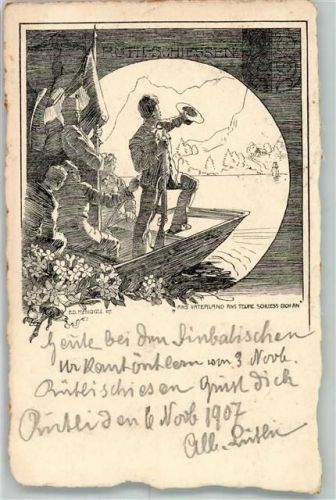 RÜTLI-SCHIESSEN
ED. RENGGLI. 07.
"ANS VATERLAND ANS TEURE SCHLIESS DICH AN"
Heute bei den
Urkantönlern von 3 Novb.
Rütlischiesen Grust dich
Rütli den 6 Novb 1907
Alb.